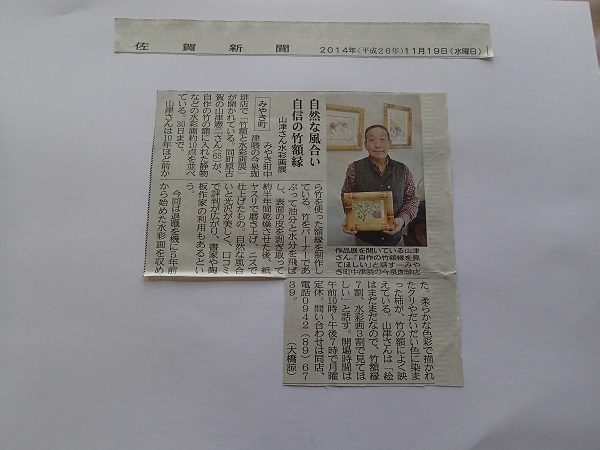 佐賀新聞
2014年(平成26年)11月19日(水曜日)
自然な風合い
自信の竹額縁
山津さん水彩画展
みやき町
みやき町中
津隈の今泉珈
琲店で「竹額と水彩画展」
が開かれている。同町原古
賀の山津憲二さん(65)が、
自作の竹の額に入れた静物
などの水彩画約10点を並べ
ている。30日まで。
山津さんは10年ほど前か
ら竹を使った額縁を制作し
ている。竹をバーナーであ
ぶって油分と水分を飛ば
し、表面の皮を剥ぎ取って
約半年間乾燥させた後、紙
ヤスリで磨き上げてニスで
仕上げたもの。自然な風合
いと光沢が美しく、口コミ
で評判が広がり、書家や陶
板作家の利用もあるとい
う。
今回は退職を機に5年前
から始めた水彩画を収め
た。柔らかな色彩で描かれ
たクリやだいだい色に染ま
った柿が、竹の額によく映
えている。山津さんは「絵
はまだまだなので、竹額縁
7割、水彩画3割で見てほ
しい」と話す。開場時間は
午前10時〜午後7時で月曜
定休。問い合わせは同店、
電話0942(89)67
39。
(大橋諒)
作品展を開いている山津
さん。「自作の竹額縁を見
てほしい」と話す=みや
き町中津隈の今泉珈琲店